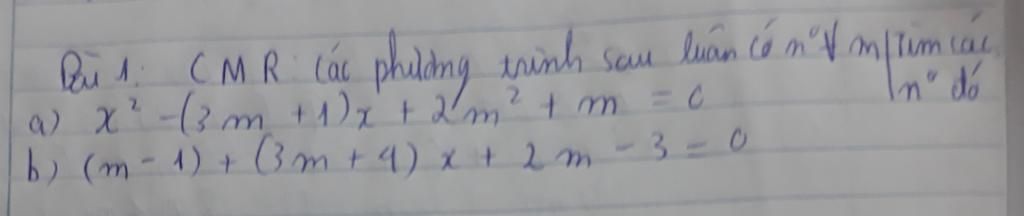 Bài 1: CMR: các phương trình sau luôn có n° ∀ m / Tìm các n° đó
a) x² - (3m + 1)x + 2m² + m = 0
b) (m - 1) + (3m + 4) x + 2m - 3 = 0